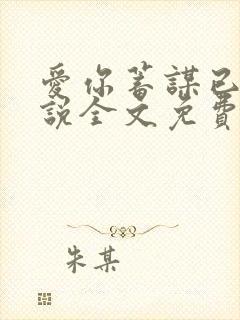 愛你蓄謀已
說全文免費
朱某